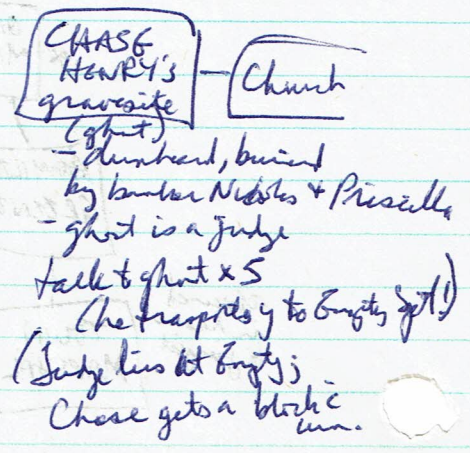 CHASE
HENRY'S — Church
gravesite
(ghost)
- drunkard, buried
by banker Nicholas + Priscilla
- ghost is a judge
talk to ghost x 5
(he transports y to Empty Spot!)
(Judge lies at Empty;
Chase gets a block c̄
urn.